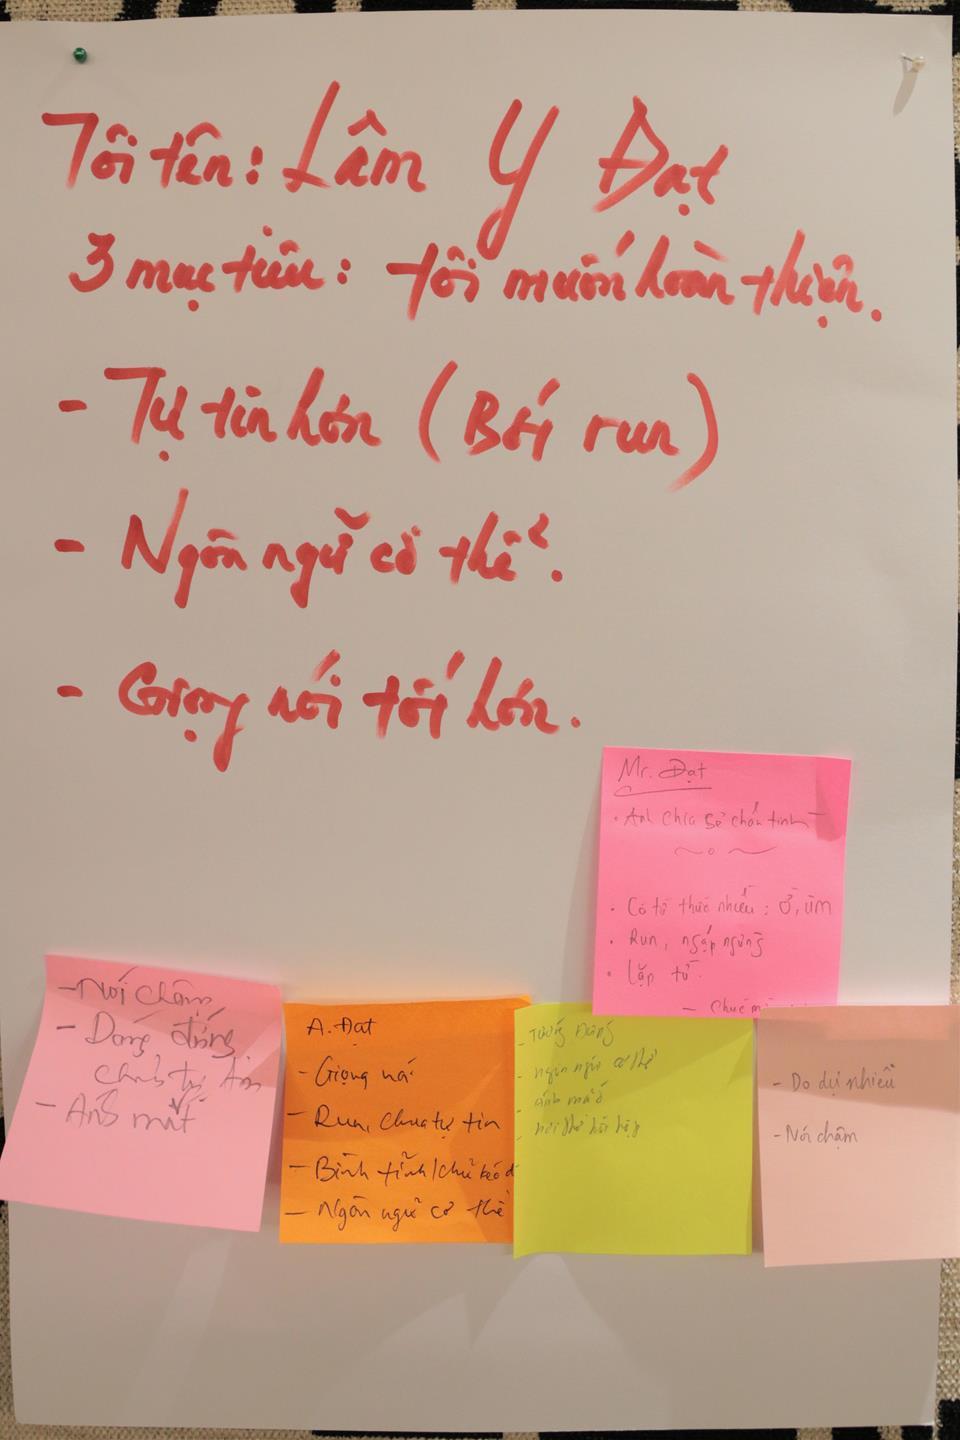 Tôi tên: Lâm Y Đạt
3 mục tiêu: tôi muốn hoàn thiện.
- Tự tin hơn (Bới run)
- Ngôn ngữ cơ thể.
- Giọng nói tốt hơn.
Mr. Đạt
. Anh chia sẻ chân tình
. Có từ thừa nhiều: ờ, ùm
. Run, ngập ngừng
. Lặp từ.
- Nói chậm
- Dáng đứng
chưa tự tin
- Ánh mắt
A. Đạt
- Giọng nói
- Run, chưa tự tin
- Bình tĩnh
- Ngôn ngữ cơ thể
- ngôn ngữ cơ thể
- ánh mắt
- Do dự nhiều
- Nói chậm